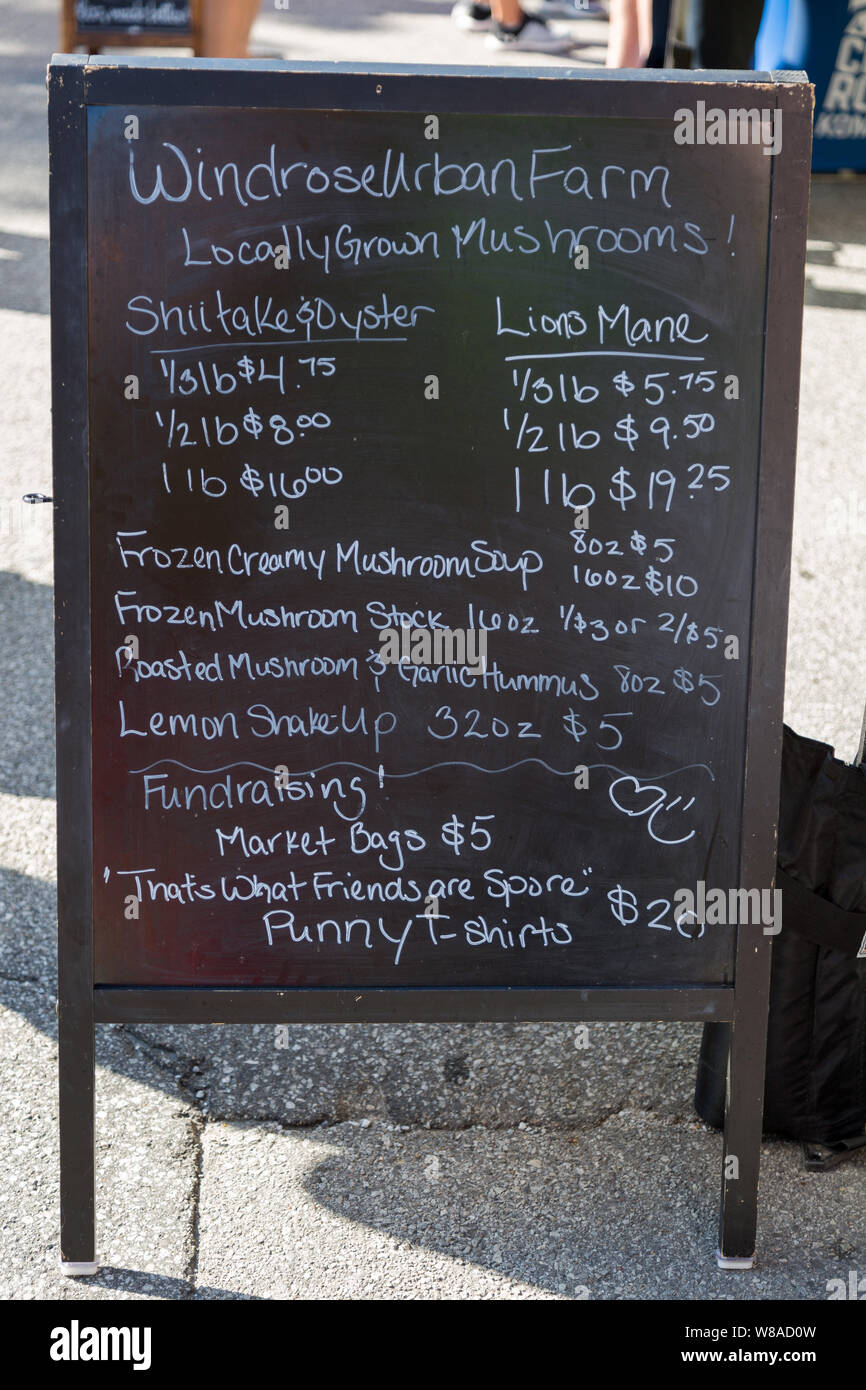 Windrose Urban Farm
Locally Grown Mushrooms!
Shiitake & Oyster
1/3 lb $4.75
1/2 lb $8.00
1 lb $16.00
Lions Mane
1/3 lb $5.75
1/2 lb $9.50
1 lb $19.25
Frozen Creamy Mushroom Soup 8oz $5
16oz $10
Frozen Mushroom Stock 16oz 1/$3 or 2/$5
Roasted Mushroom & Garlic Hummus 8oz $5
Lemon Shake-Up 32oz $5
Fundraising!
Market Bags $5
"Thats What Friends are Spore"
Punny T-shirts $20
alamy
Image ID: W8AD0W
www.alamy.com